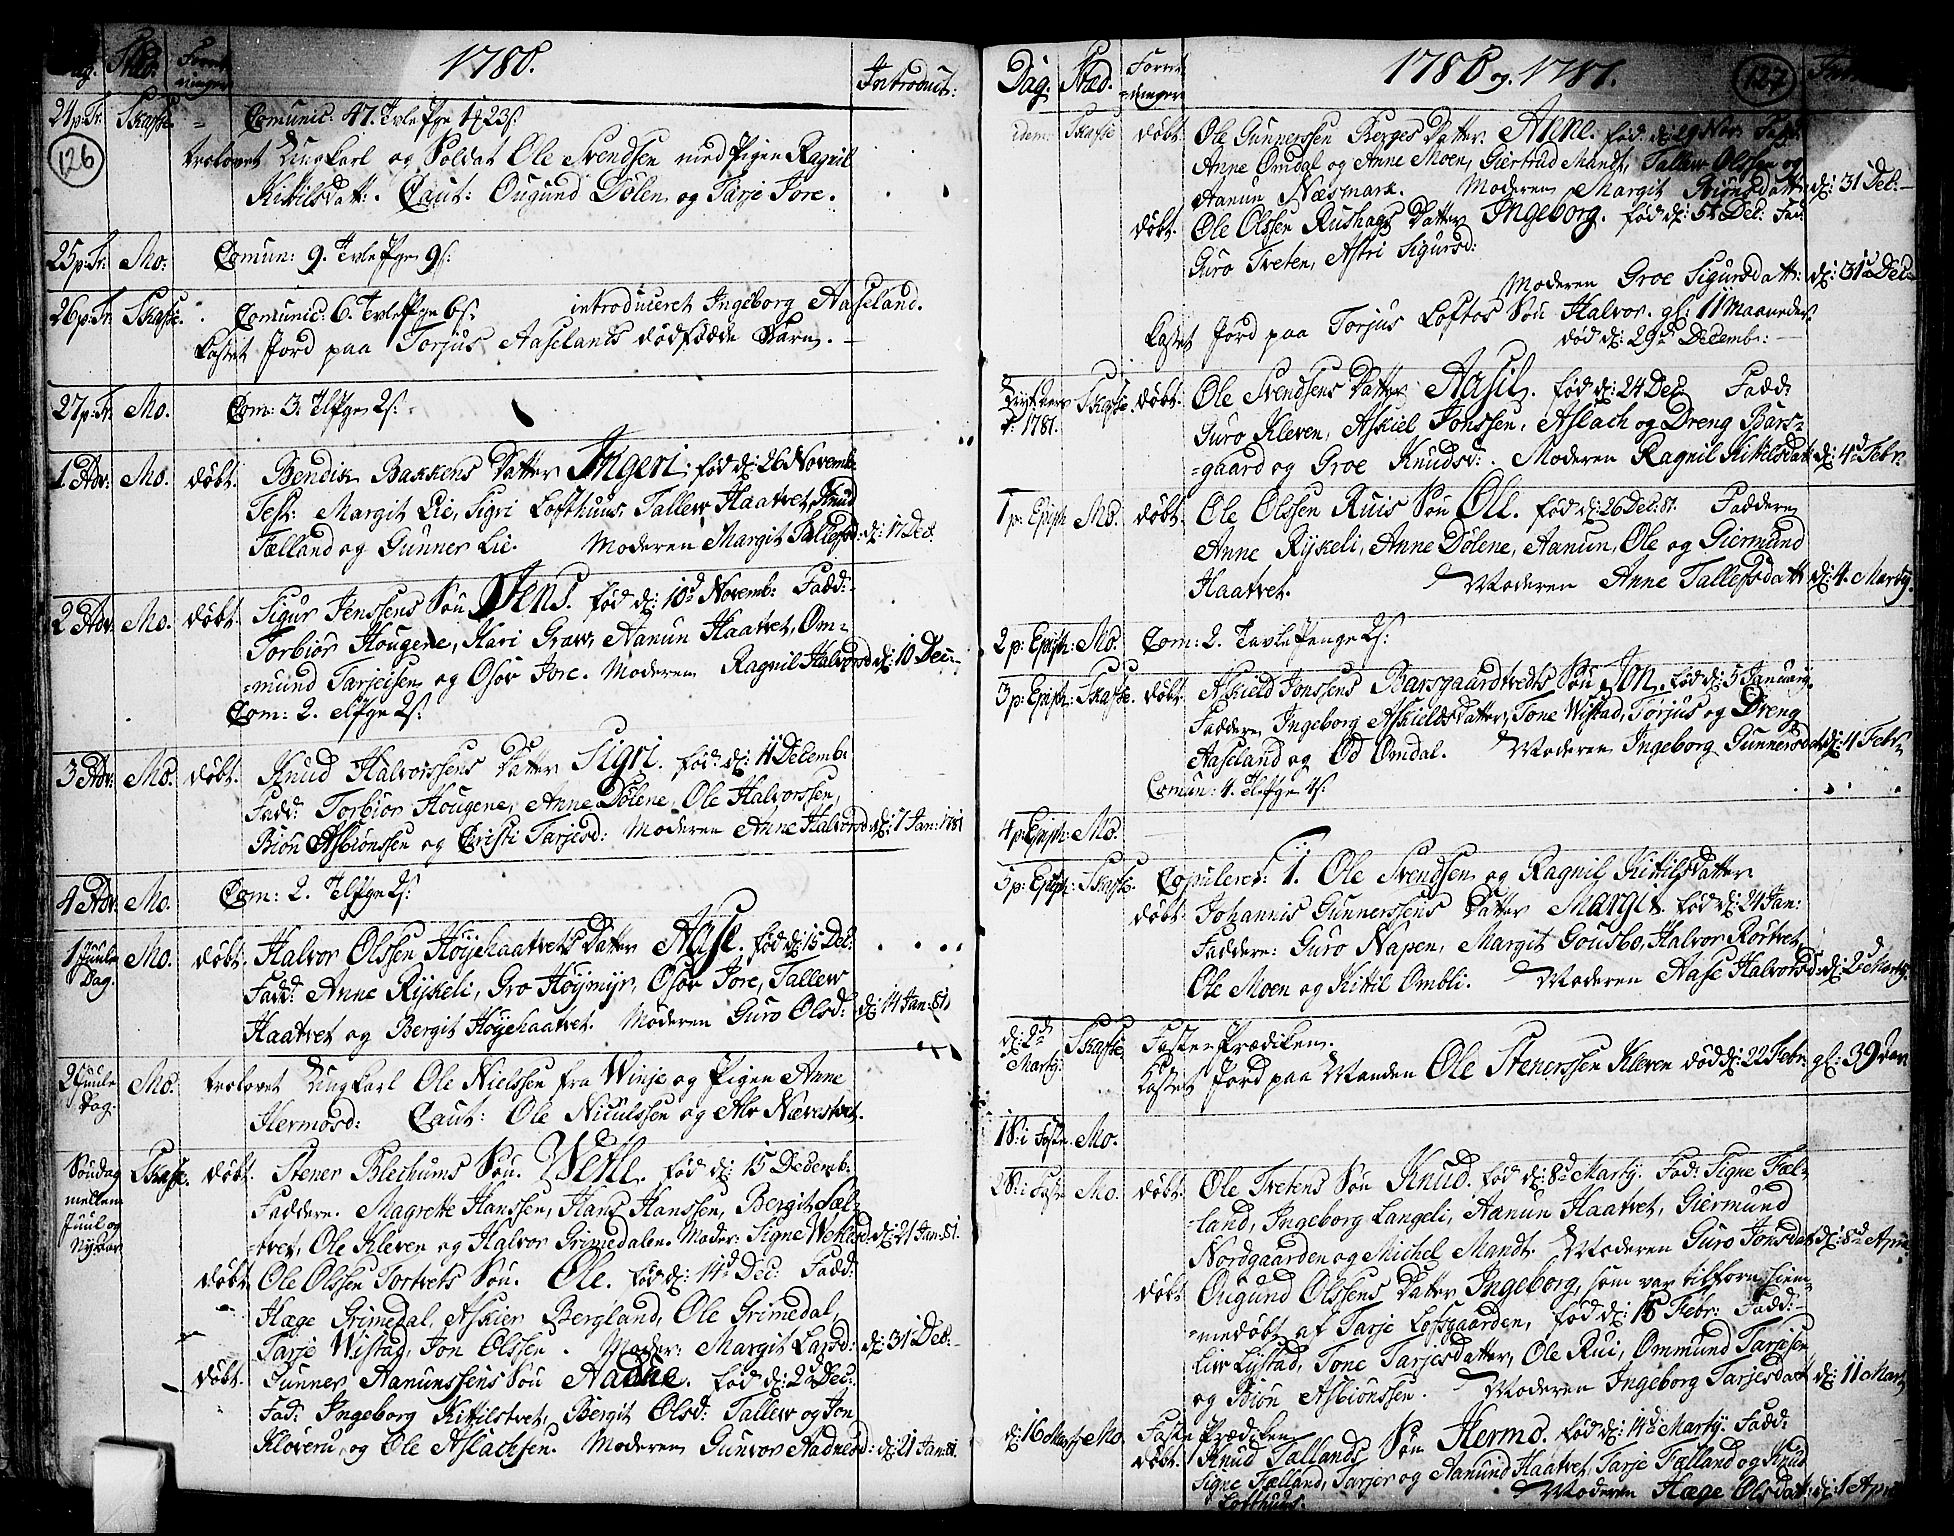 Dag. Stæd. Forret-
ninger 1780. Introduct:
24 p: Tr. Skafse. Comunic. 47. Tvle Pge 1 23 s.
126
trolovet Ungkarl og Soldat Ole Svendsen med Pigen Ragnil
Kittilsdatt: Caut: Ougund Dölen og Tarje Jore.
25 p: Tr. Mo: Comun: 9. Tvle Pge 9 s:
26 p: Tr. Skafse. Comunic: 6. Tvle Pge 6 s: introduceret Ingeborg Aaseland.
Kastet Jord paa Torjus Aaselands dödfödde Barn.
27 p: Tr. Mo. Com: 3. Tlf Pge 2 s:
1 Adv: Mo. döbt. Bendix Bakkens Datter Ingeri: föd d: 26 Novemb:
Test: Margit Lie, Sigri Lofthuus, Tallew Haatvet, Knud
Fælland og Gunner Lie. Moderen Margit Tallefsd: d: 17 Dec.
2 Adv. Mo. döbt. Sigur Jenssens Sön Jens. föd d: 10d Novemb: Fadd:
Torbiör Hougene, Kari Graw, Aanun Haatvet, Om-
=mund Tarjeisen og Osov Jore. Moderen Ragnil Halvorsd d: 10 Dec:
Com: 2. Tlf Pge 2 s:
3 Adv: Mo. döbt. Knud Halvorssens Datter Sigri. föd d: 11 Decemb:
Fadd: Torbiör Hougene, Anne Dölene, Ole Halvorssen,
Biön Asbiönssen og Christi Tarjesd: Moderen Anne Halvorsd d: 7 Jan: 1781
4 Adv: Mo. Com: 2. Tlf Pge 2 s:
1 Juule
Dag. Mo. döbt. Halvor Olssen Höjehaatvets Datter Aase. föd d: 15 Dec:
Fadd: Anne Rijkeli, Gro Höijmyr, Osov Jore, Tallew
Haatvet og Bergit Höjehaatvet. Moderen Guro Olsd: d: 14 Jan: 81.
2 Juule
Dag. Mo. trolovet Ungkarl Ole Nielssen fra Winje og Pigen Anne
Hermosd: Caut: Ole Niculssen og Alv Næverstvet.
Söndag
mellem
Juul og
Nytaar Skafse. döbt. Stener Blechums Sön. Wetle. föd d: 15 Decemb:
Faddere. Magrette Hanssen, Hans Hanssen, Bergit Sæl-
-tvet, Ole Kleven og Halvor Grimedalen. Moder: Signe Wetlesd d: 21 Jan: 81.
döbt Ole Olssen Tortvets Sön. Ole. föd d: 14d Dec: Fadd:
Hæge Grimedal, Askier Bergland, Ole Grimedal,
Tarje Wistad, Jon Olssen. Moder: Margit Larsd: d: 31 Dec:
döbt. Gunner Aanunssens Sön Aadne. föd d: 22 Dec:
Fad: Ingeborg Kittilstvet, Bergit Olsd: Tallew og Jon
Kløveru, og Ole Aslachsen. Moderen Gunvor Aadnesd: d: 21 Jan: 81.
Dag. Stæd. Forret-
=ninger 1780 og 1781. 127
idem Skafse döbt. Ole Gunnerssen Berges Datter Anne. föd d: 29 Nov: Fadd:
Anne Omdal og Anne Moen, Giertrud Mandt, Tallew Olssen og
Aanun Næsmark. Moderen Margit Biönsdatt: d: 31 Dec:
döbt. Ole Olssen Rushags Datter Ingeborg. föd d: 5t Dec: Fad:
Guro Tveten, Astri Sigursd:
Moderen Groe Sigursdatt: d: 31d Dec:
Kastet Jord paa Torjus Loftos Sön Halvor. gl: 11 Maaneder.
död d: 29d Decembr:
1781. Skafse. döbt. Ole Svendsens Datter Aasil. föd d: 24 Dec: Fadd:
Guro Kleven, Askiel Jonssen, Aslach og Dreng Bars-
=gaard og Groe Knudsd: Moderen Ragnil Kittilsdatt d: 4d Febr.
1 p: Epiph Mo. döbt. Ole Olssen Ruis Sön Oll. föd d: 26 Dec: 8. Faddere
Anne Rijkeli, Anne Dölene, Aanun, Ole og Giermund
Haatvet. Moderen Anne Tallefsdatt d: 4. Martij.
2 p: Epiph: Mo. Com: 2. Tavle Penge 2 s:
3 p: Epiph: Skafse. döbt. Askield Jonssens Barsgaardtvedts Sön Jon. föd d: 5 Januarij.
Faddere Ingeborg Askieldsdatter, Tone Wistad, Torjus og Dreng
Aaseland og Od Omdal. Moderen Ingeborg Gunnersdat: d: 4 Febr.
Comun: 4. Tlf Pge 4 s:
4 p: Epiph: Mo.
5 p: Epiph: Skafse. Copuleret: 1. Ole Svendsen og Ragnil Kittilsdatter
döbt. Johannis Gunnerssens Datter Margit. föd d: 21 Jan:
Faddere: Guro Napen, Margit Gousbo, Halvor Rortvet,
Ole Moen og Kittil Ombli. Moderen Aase Halvorsd: d: 2d Martij.
d: 2d
Martij: Skafse Faste Prædiken.
Kastet Jord paa Manden Ole Stenerssen Kleven död d: 22 Febr: gl: 39 aar
1 S: i Faste. Mo.
2 S: i Faste Mo. döbt. Ole Tvetens Sön Knud. föd d: 8d Martij. Fad: Signe Fæl-
-land, Ingeborg Langeli, Aanun Haatvet, Giermund
Nordgaarden og Michel Mandt. Moderen Guro Jonsdat d: 8d April
döbt Ougund Olssens Datter Ingeborg, som var tilforn hiem-
=medöbt af Tarje Lofsgaarden, föd d: 15 Febr: Fadd:
Liv Lystad, Tone Tarjesdatter, Ole Rui, Ommund Tarjesen
og Biön Asbiönssen. Moderen Ingeborg Tarjesdatt d: 11 Martij
d: 16 Martij Mo Faste Prædiken
döbt. Knud Fællands Sön Hermo. föd d: 14d Martij. Fadd:
Signe Fælland, Tarjer og Aanund Haatvet, Tarje Fælland og Knud
Lofthuus. Moderen Hæge Olsdatt: d: 1 April